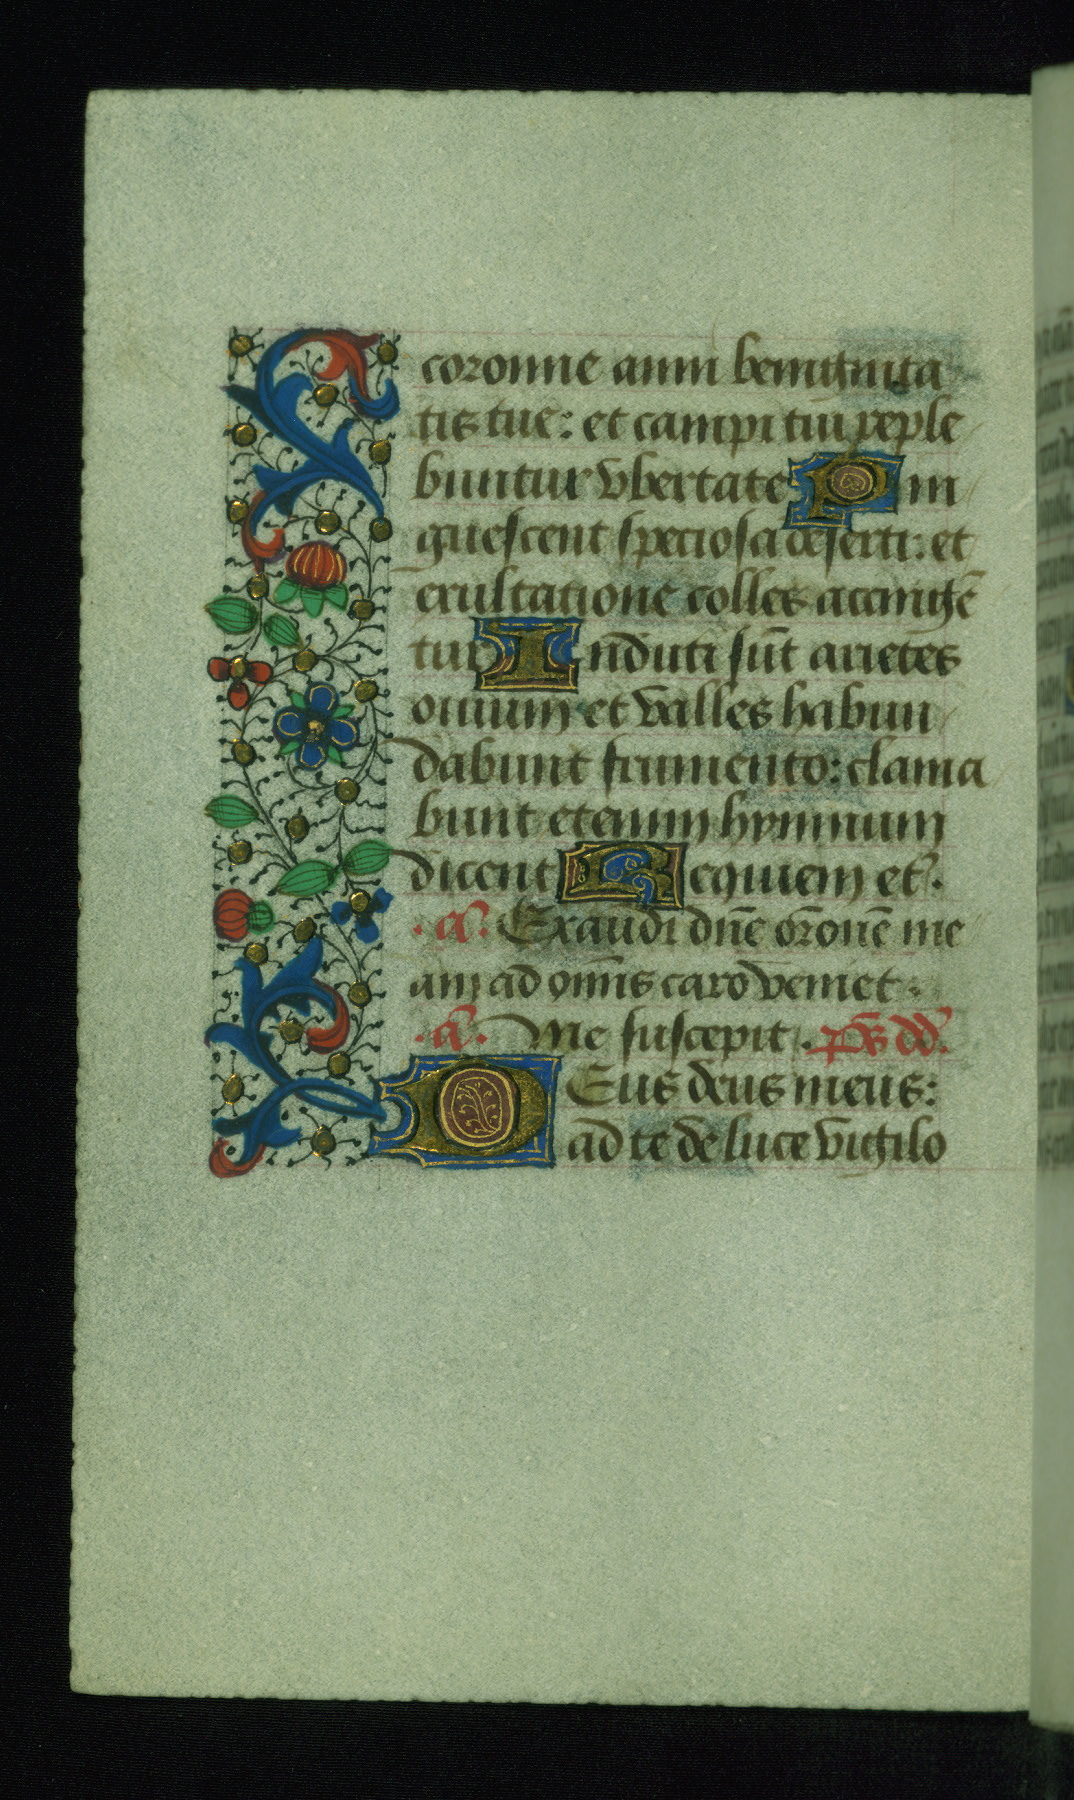 coronne anni benignita
tis tue: et campi tui reple
buntur vbertate Pin
guescent speciosa deserti: et
exultatione colles accingē
tur Induti sūt arietes
ouium et valles habun
dabunt frumento: clama
bunt etenim hymnum
dicent Requiem et̄.
.a. Exaudi dn̄e or̄onē me
am ad om̄is caro veniet.
.a. Me suscepit. ps̄ dd.
DEus deus meus:
ad te de luce vigilo